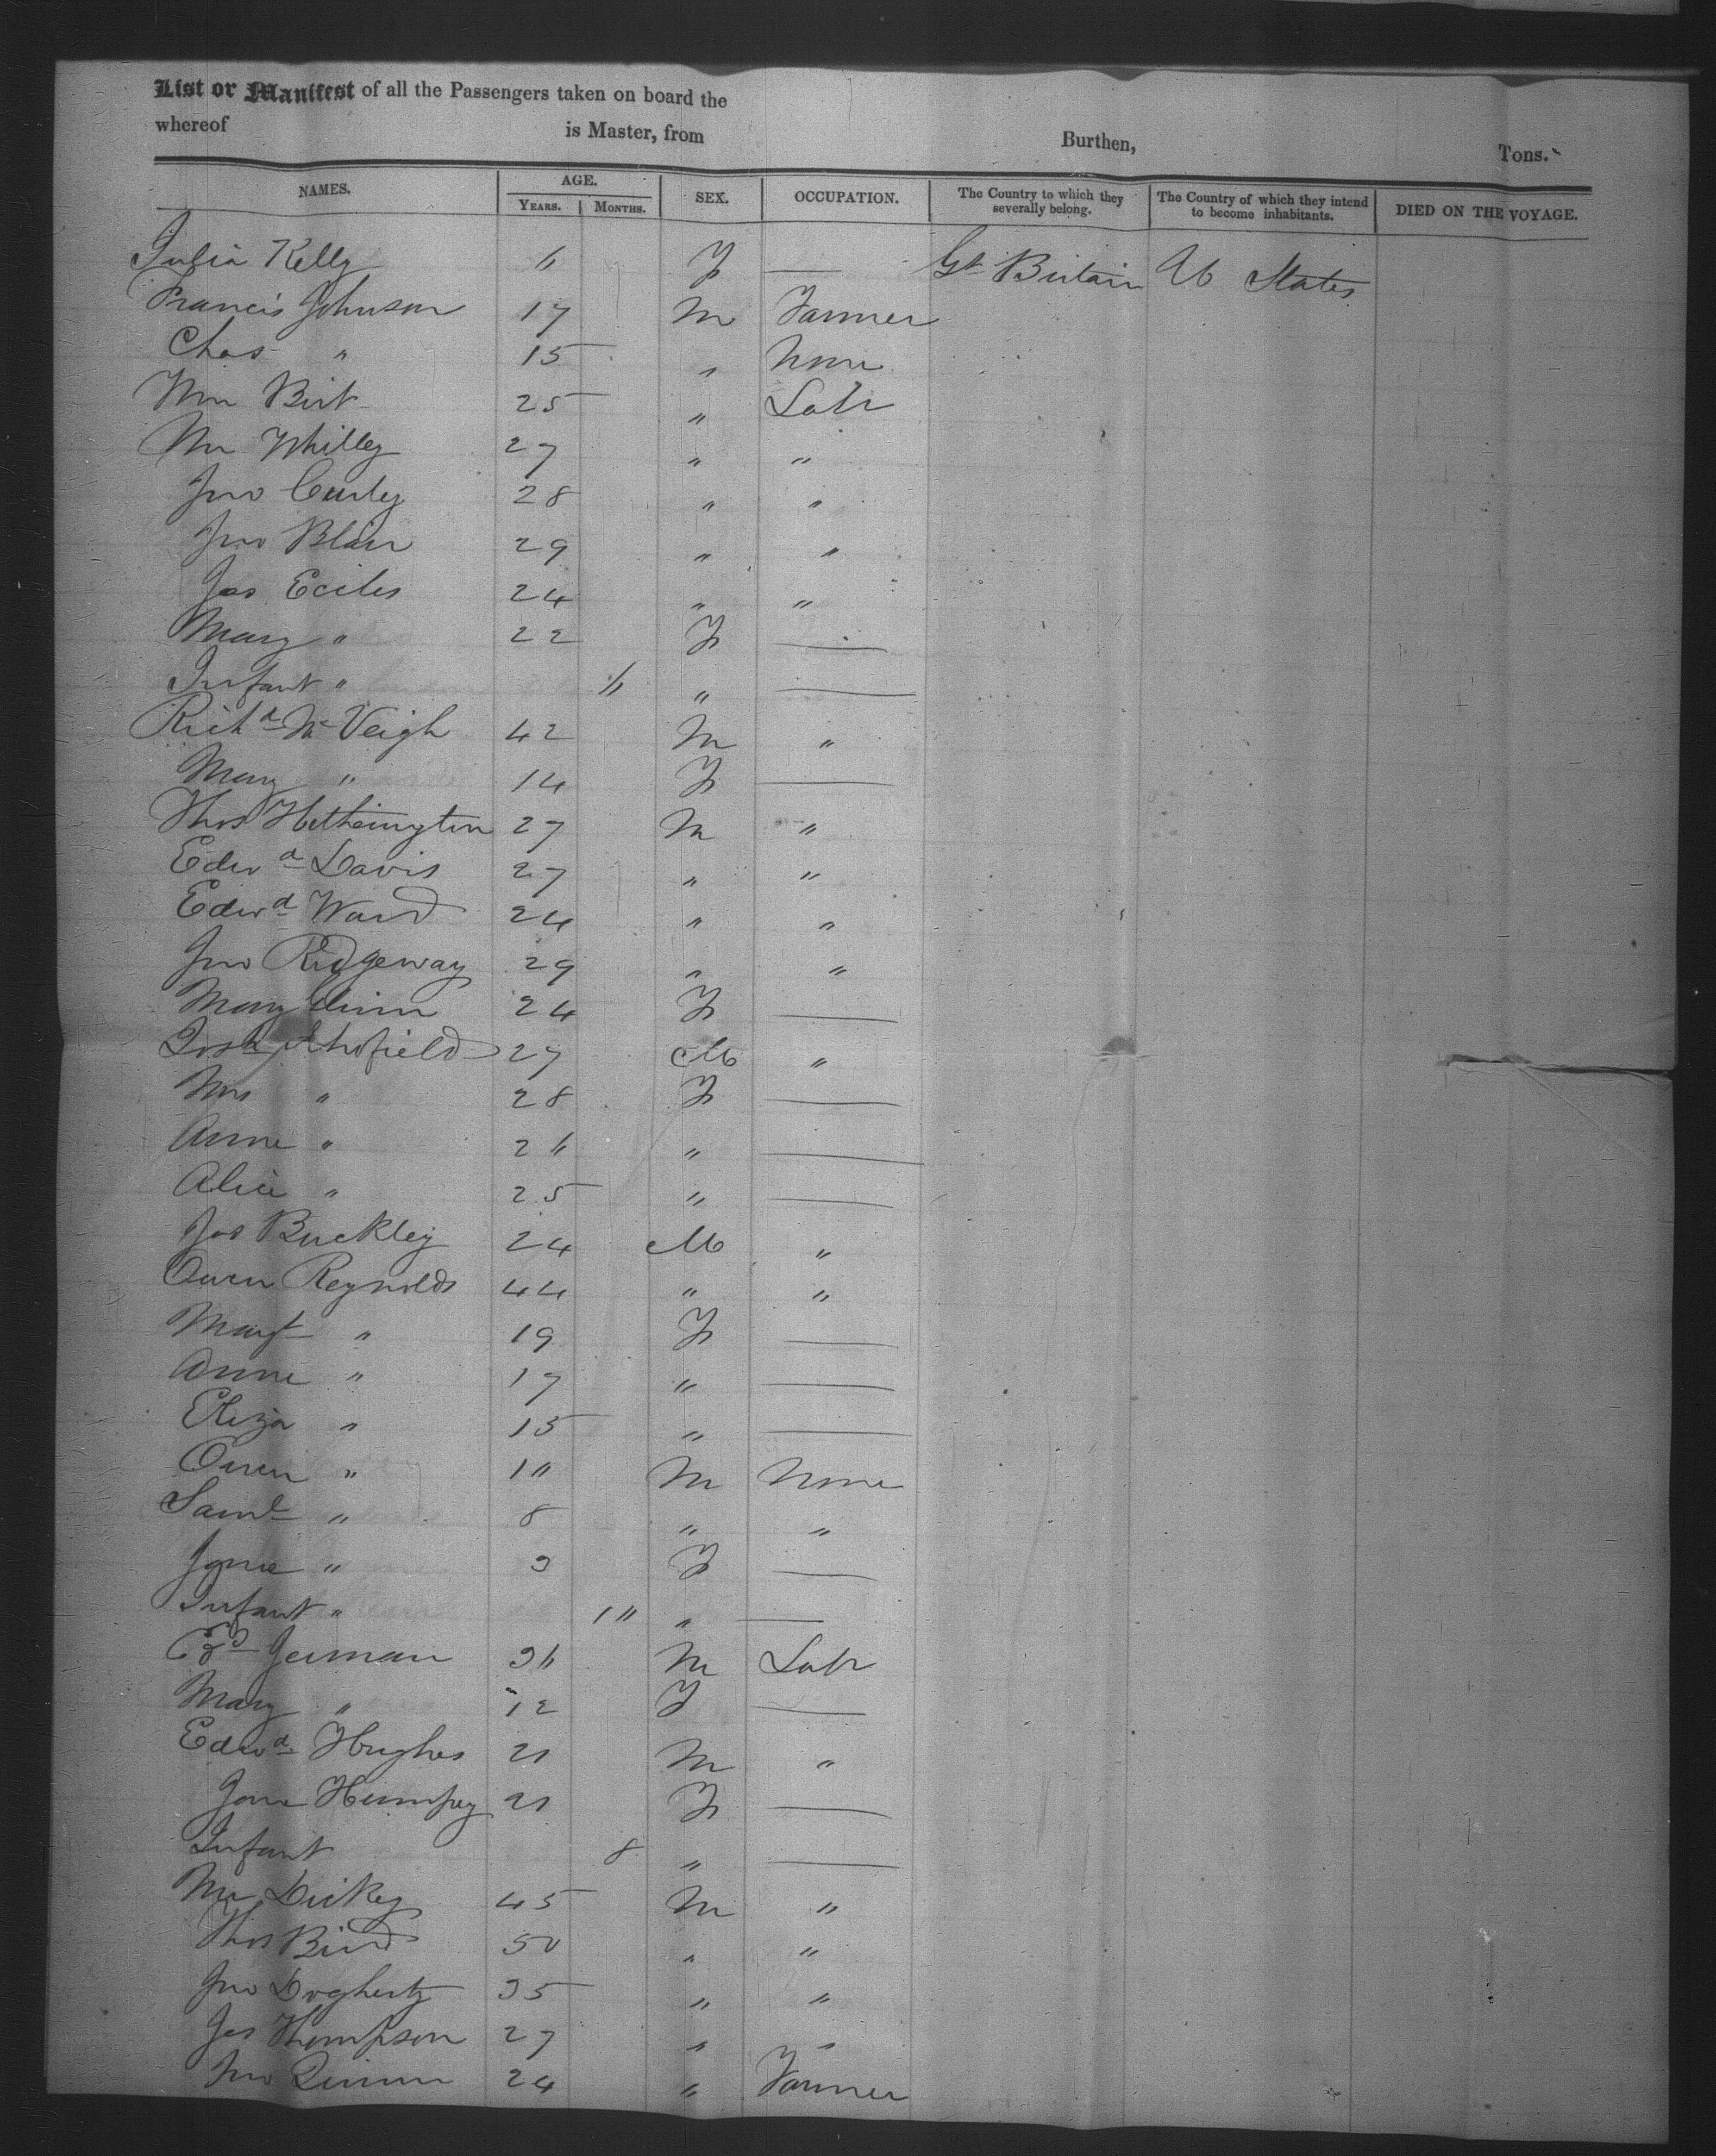 List or Manifest of all the Passengers taken on board the
whereof is Master, from Burthen, Tons.
NAMES. AGE. YEARS. MONTHS. SEX. OCCUPATION. The Country to which they severally belong. The Country of which they intend to become inhabitants. DIED ON THE VOYAGE.
Julia Kelly 6 F — Gt Britain U States
Francis Johnson 17 M Farmer
Chas " 15 " None
Wm Birt 25 " Labr
Wm Whilley 27 " "
Jno Curley 28 " "
Jno Blair 29 " "
Jas Eccles 24 " "
Mary " 22 F —
Infant " 6 " —
Richd McVeigh 42 M "
Mary " 14 F —
Thos Hetherington 27 M "
Edwd Davis 27 " "
Edwd Ward 24 " "
Jno Ridgeway 29 " "
Mary 24 F —
Josh Schofield 27 M "
Mrs " 28 F —
Anne " 26 " —
Alice " 25 " —
Jas Buckley 24 M "
Owen Reynolds 44 " "
Margt " 19 F —
Anne " 17 " —
Eliza " 15 " —
Owen " 10 M None
Saml " 8 " "
Jane " 3 F —
Infant " 10 " —
German 36 M Labr
Mary " 12 F —
Edwd Hughes 21 M "
Jane Humfrey 21 F —
Infant 8 " —
Wm Dickey 45 M "
Thos Bird 50 " "
Jno Dogherty 35 " "
Jas Thompson 27 " "
Jno Quinn 24 " Farmer